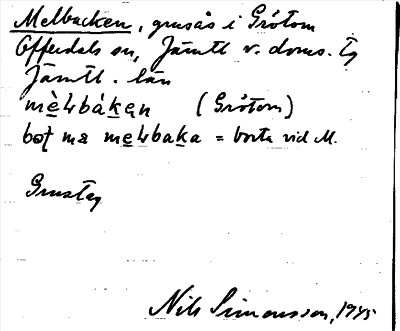 Melbacken, grusås i Gråtom
Offerdals sn, Jämtl v. doms. tg
Jämtl. län
mèƚbákęn (Gråtom)
bot̯ ma męƚbaka = borta vid M.
Grustag
Nils Simonsson, 1945